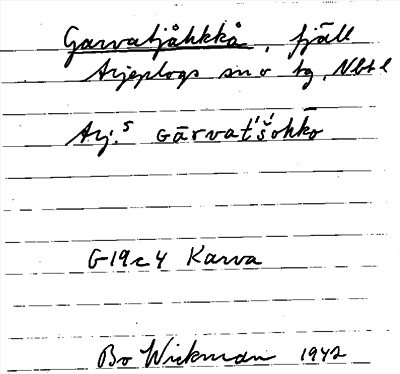 Garvatjåhkkå, fjäll
Arjeplogs sn o tg, Nbtl
Arj.ˢ Gārvat́š́ohkō
G19c4 Karva
Bo Wickman 1942